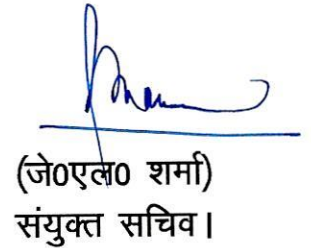 (जे0एल0 शर्मा)
संयुक्त सचिव।